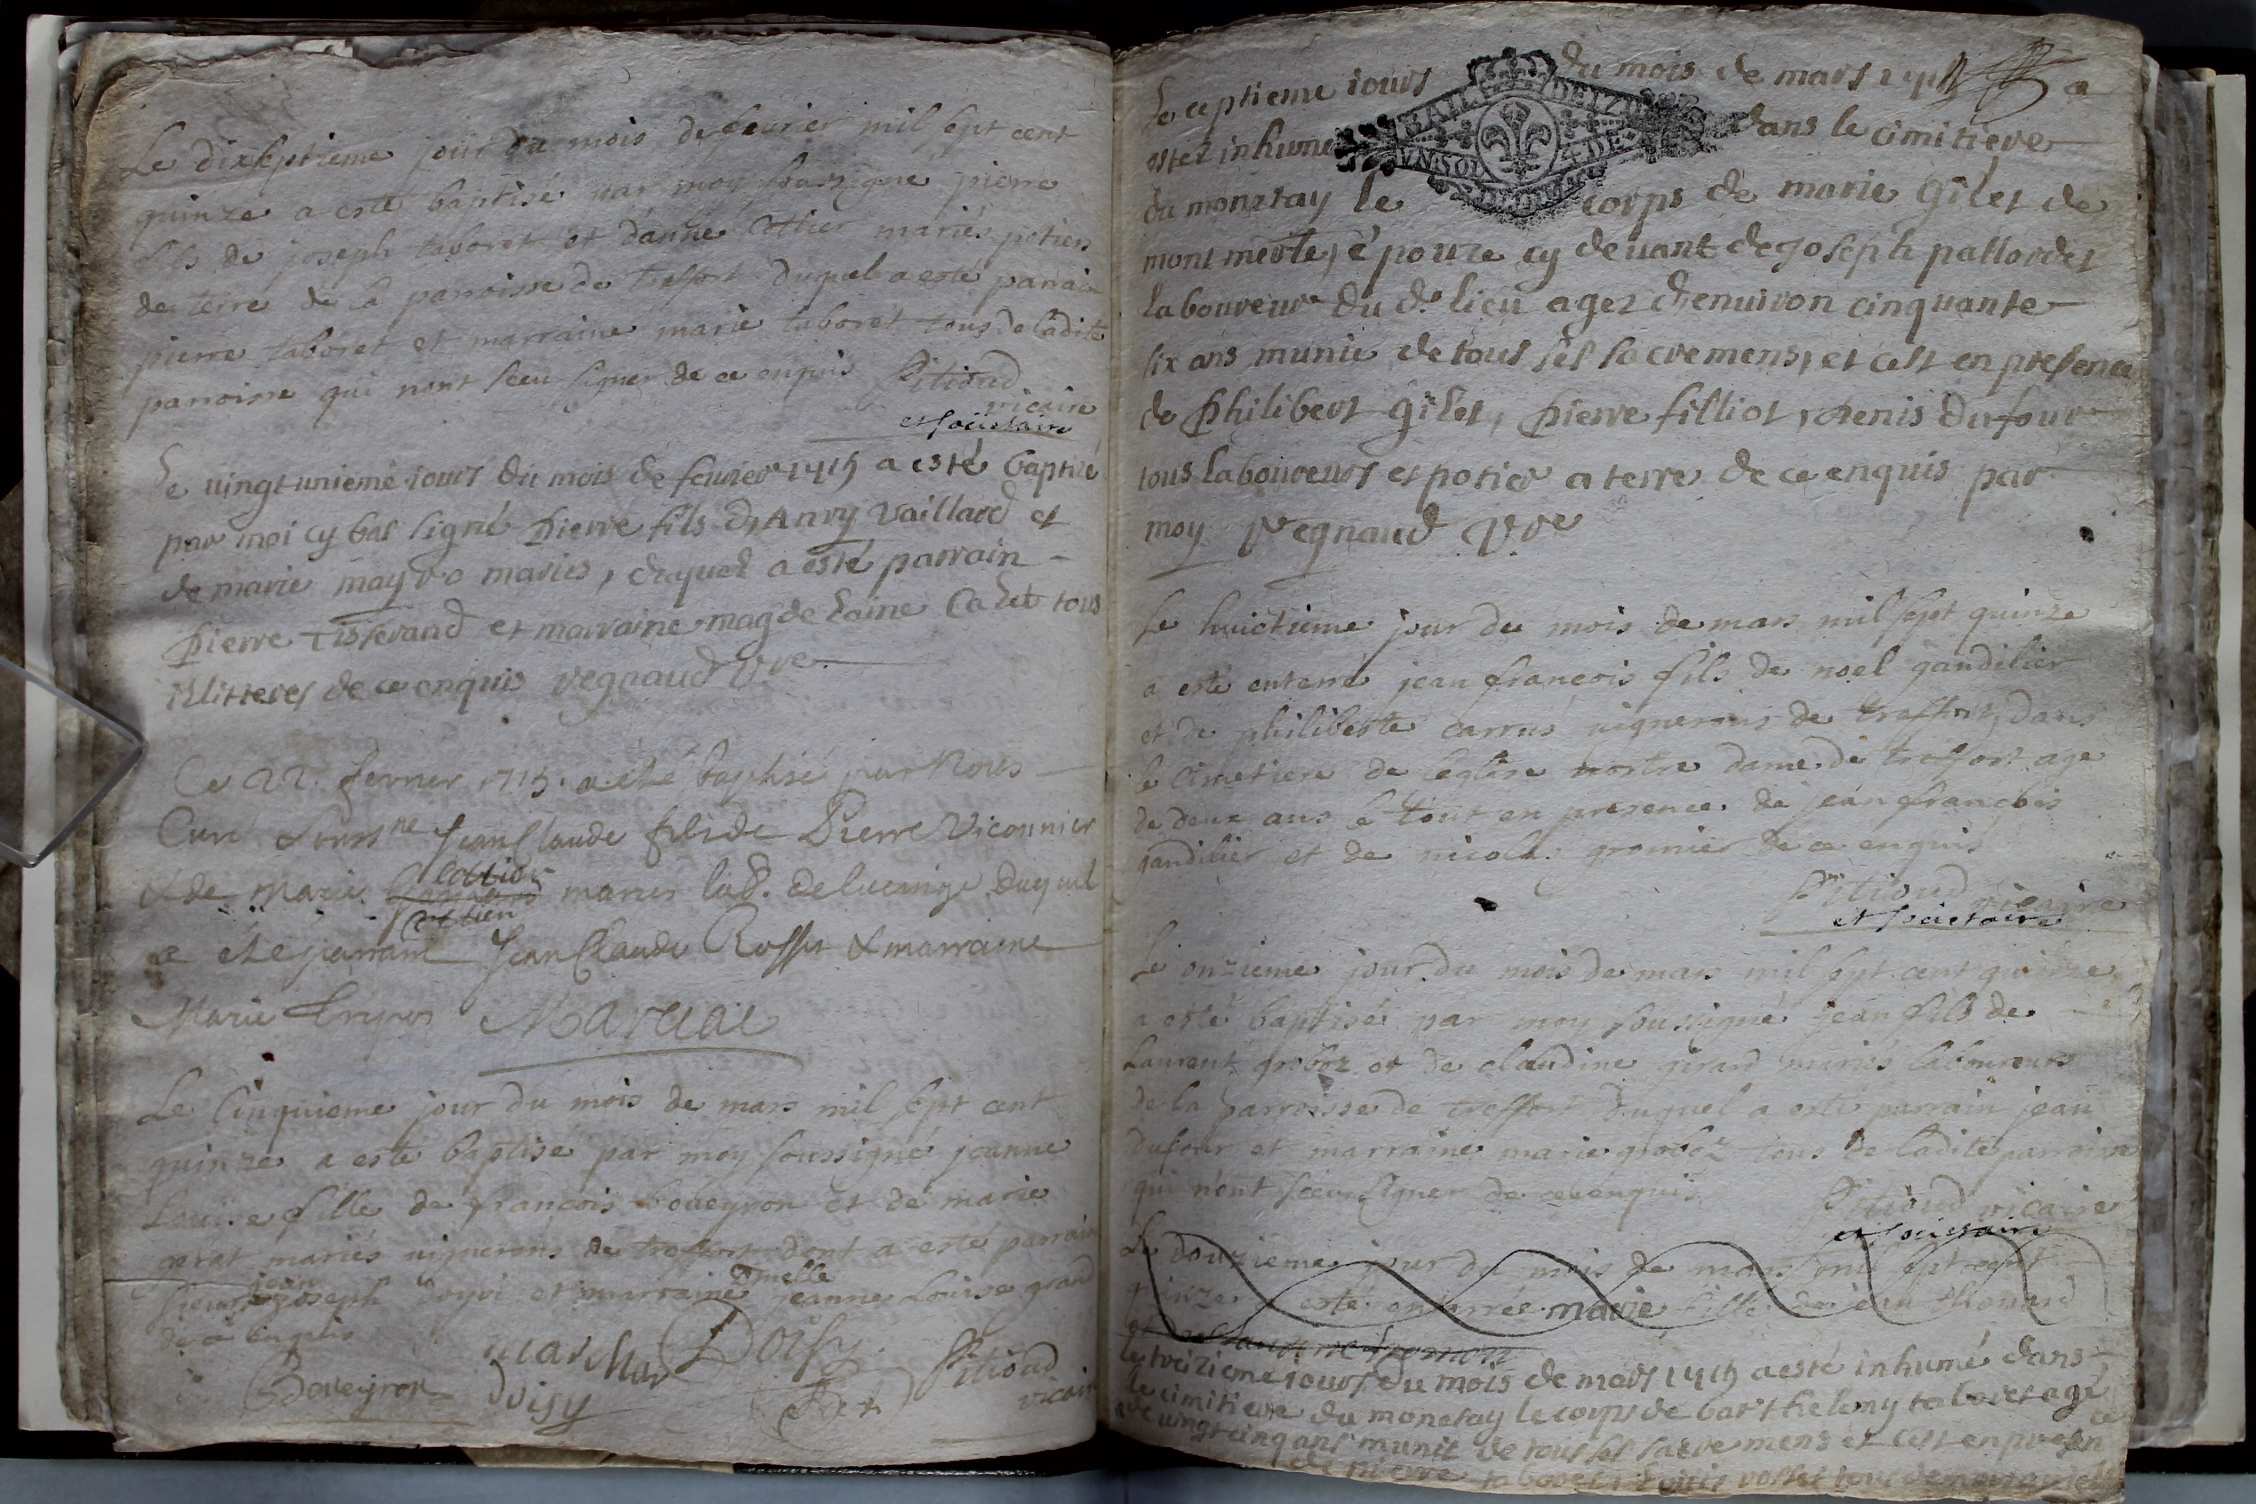 Le dixseptieme jour du mois de fevrier mil sept cent
quinze a esté baptisé par moy soussigné pierre
fils de joseph taboret et d'anne Ottier mariés potiers
de terre de la parroisse de treffort duquel a esté parrain
pierre taboret et marraine marie taboret tous de ladite
parroisse qui n'ont sceu signer de ce enquis Pitioud
vicaire
et societaire
Le vingt unieme iours du mois de fevrier 1715 a esté baptizé
par moi cy bas signé pierre fils d'Anry Vaillard et
de marie mayro mariés, duquel a esté parrain
pierre tisserand et marraine magdelaine Calet tous
illitteres de ce enquis regnaud vre
Ce 22. fevrier 1715. a été baptisé par Nous
Curé Sousne Jean Claude fils de Pierre Viconnier
& de Marie cottier mariés lab. de lucinge duquel
a été parrain Jean Claude Rosset & marraine
Marie
Marechal
Le Cinquieme jour du mois de mars mil sept cent
quinze a esté baptisé par moy soussigné jeanne
Louise fille de francois boveyron et de marie
perat mariés vignerons de treffort dont a esté parrain
sieur jean joseph doysi et marraine dmelle jeanne Louise grand
de ce enquis
marchas Doisy
Boveyron Doisy Pitioud
vicaire
Le ceptieme iours du mois de mars 1715 a
estez inhume dans le cimitiere
du monetay le corps de marie gilet de
mont merle, épouze cy devant de Joseph pallordet
laboureur du d. lieu agez d'environ cinquante
six ans munie de tous ses sacremens, et cest en presence
de philibert gilet, pierre filliot, denis dufour
tous laboureurs et potier a terre de ce enquis par
moy regnaud vre
Le huictieme jour du mois de mars mil sept quinze
a esté enterré jean francois fils de noel gandilier
et de philiberte carrus vignerons de treffort, dans
le cimetiere de l'eglise nostre dame de treffort age
de deux ans le tout en presence de jean francois
gandilier et de nicolas gromier de ce enquis
Pitioud vicaire
et societaire
Le onzieme jour du mois de mars mil sept cent quinze
a esté baptisé par moy soussigné jean fils de
Laurent groboz et de claudine girard mariés laboureurs
de la parroisse de treffort duquel a esté parrain jean
dufour et marraine marie groboz tous de ladite parroisse
qui n'ont sceu signer de ce enquis
Pitioud vicaire
et societaire
Le douzieme jour du mois de mars mil sept cent
quinze a esté enterrée marie fille de jean thonard
et
Le treizieme iours du mois de mars 1715 a esté inhumé dans
le cimitiere du monetay le corps de barthelemy taboret agé
de vingt cinq ans munit de tous ses sacremens et cest en presence
de pierre taboret